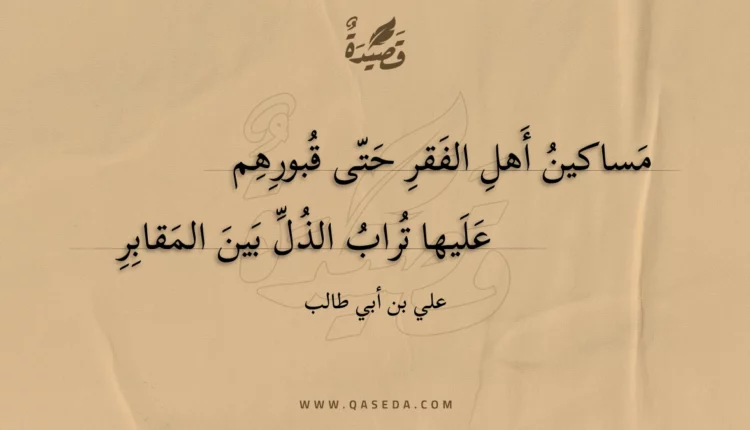 قَصِيْدَةٌ
مَساكينُ أَهلِ الفَقرِ حَتّى قُبورِهِم
عَلَيها تُرابُ الذُلِّ بَينَ المَقابِرِ
علي بن أبي طالب
WWW.QASEDA.COM